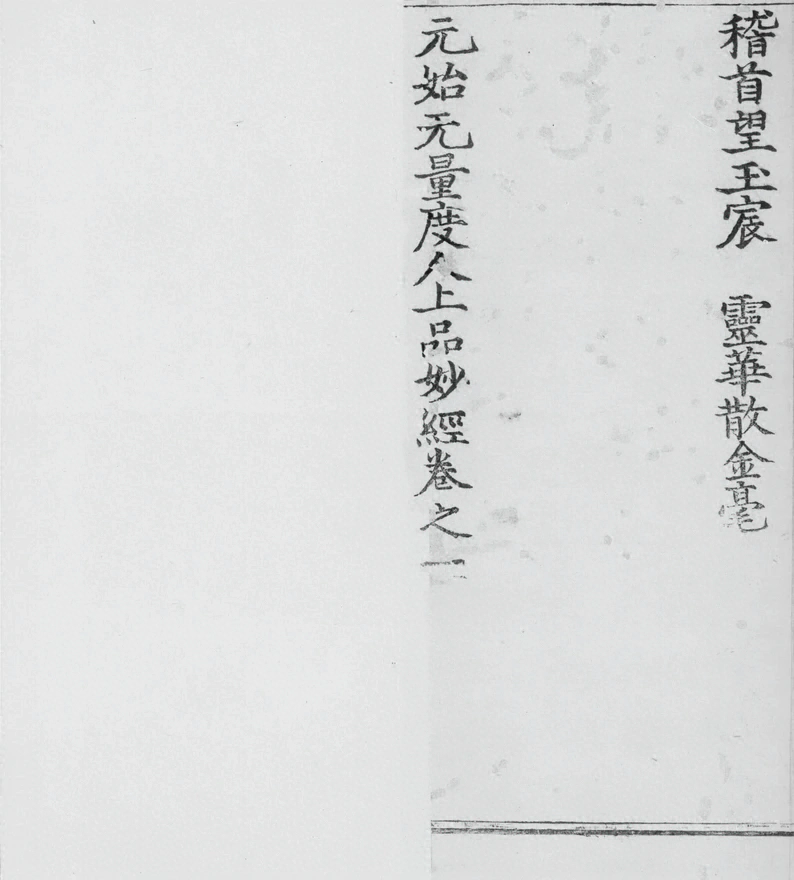 稽首望玉宸　靈華散金毫
元始无量度人上品妙經卷之一